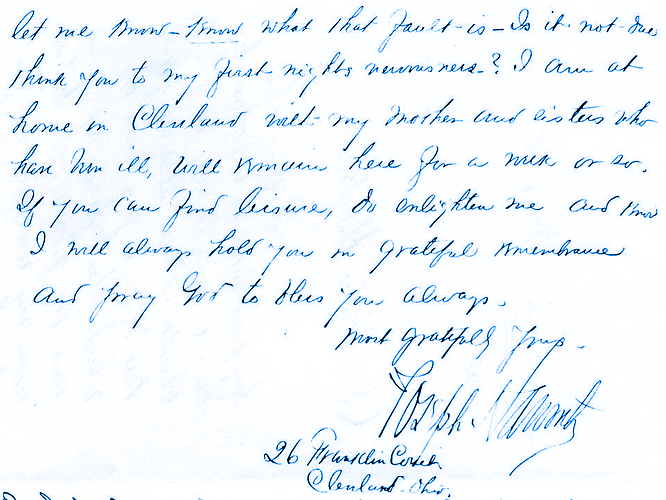 let me know - know what that fault is - Is it not due
think you to my first nights nervousness -? I am at
home in Cleveland with my Mother and sisters who
have been ill, will remain here for a week or so.
If you can find leisure, do enlighten me and know
I will always hold you in grateful remembrance
and pray God to bless you always.
Most gratefully yours -
Joseph
26 Franklin
Cleveland - Ohio.